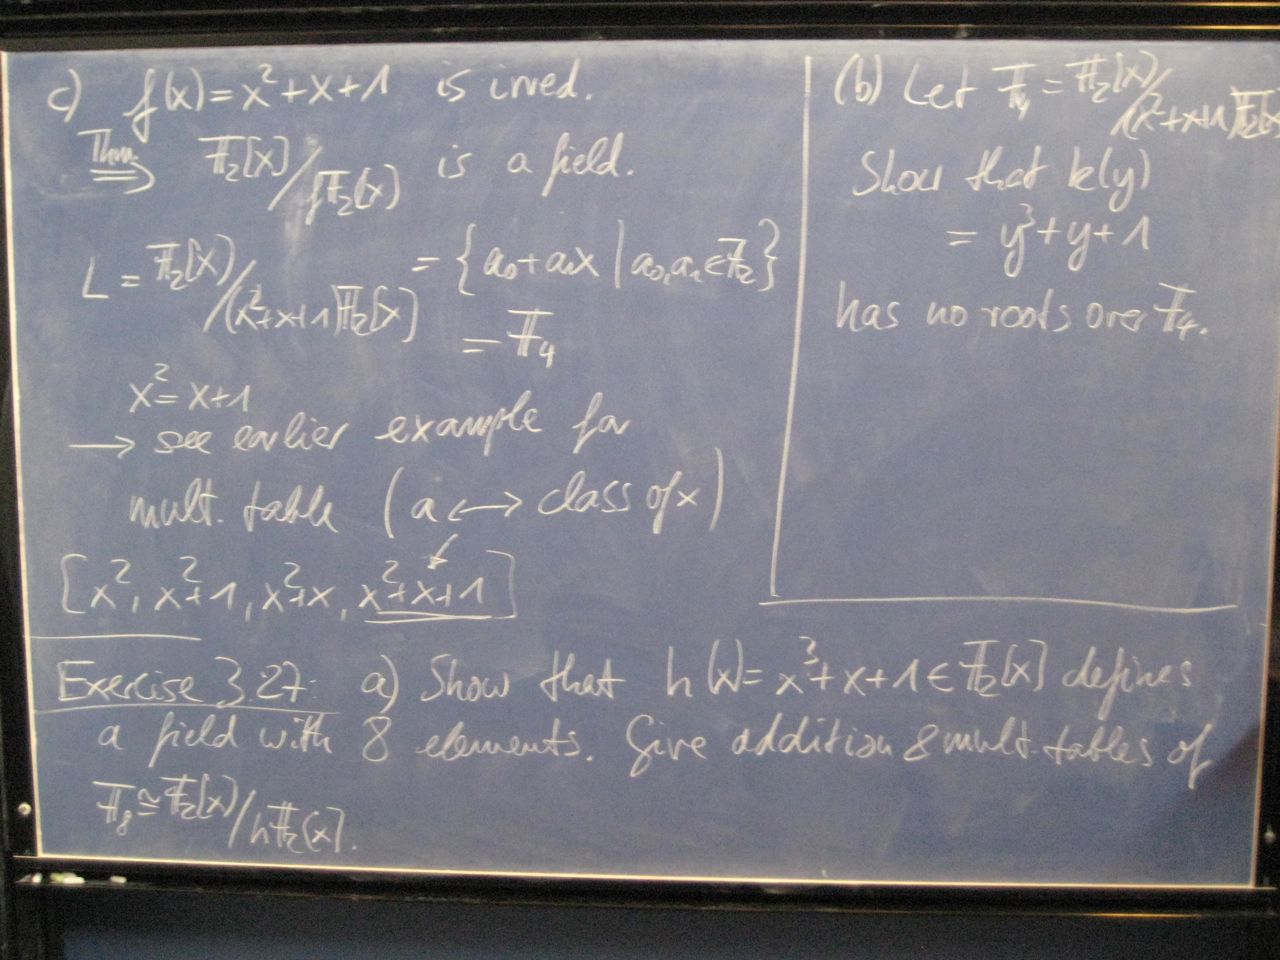 c) f(x) = x²+x+1 is irred.
Thm. ⟹ 𝔽₂[x]/f𝔽₂[x] is a field.
L = 𝔽₂[x]/(x²+x+1)𝔽₂[x] = {a₀+a₁x | a₀,a₁∈𝔽₂}
= 𝔽₄
x² = x+1
→ see earlier example for
mult. table (a ↔ class of x)
[x², x²+1, x²+x, x²+x+1]
(b) Let 𝔽₄ = 𝔽₂[x]/(x²+x+1)𝔽₂[x]
Show that k(y)
= y³+y+1
has no roots over 𝔽₄.
Exercise 3.27: a) Show that h(x) = x³+x+1 ∈ 𝔽₂[x] defines
a field with 8 elements. Give addition & mult. tables of
𝔽₈ ≅ 𝔽₂[x]/h𝔽₂[x].